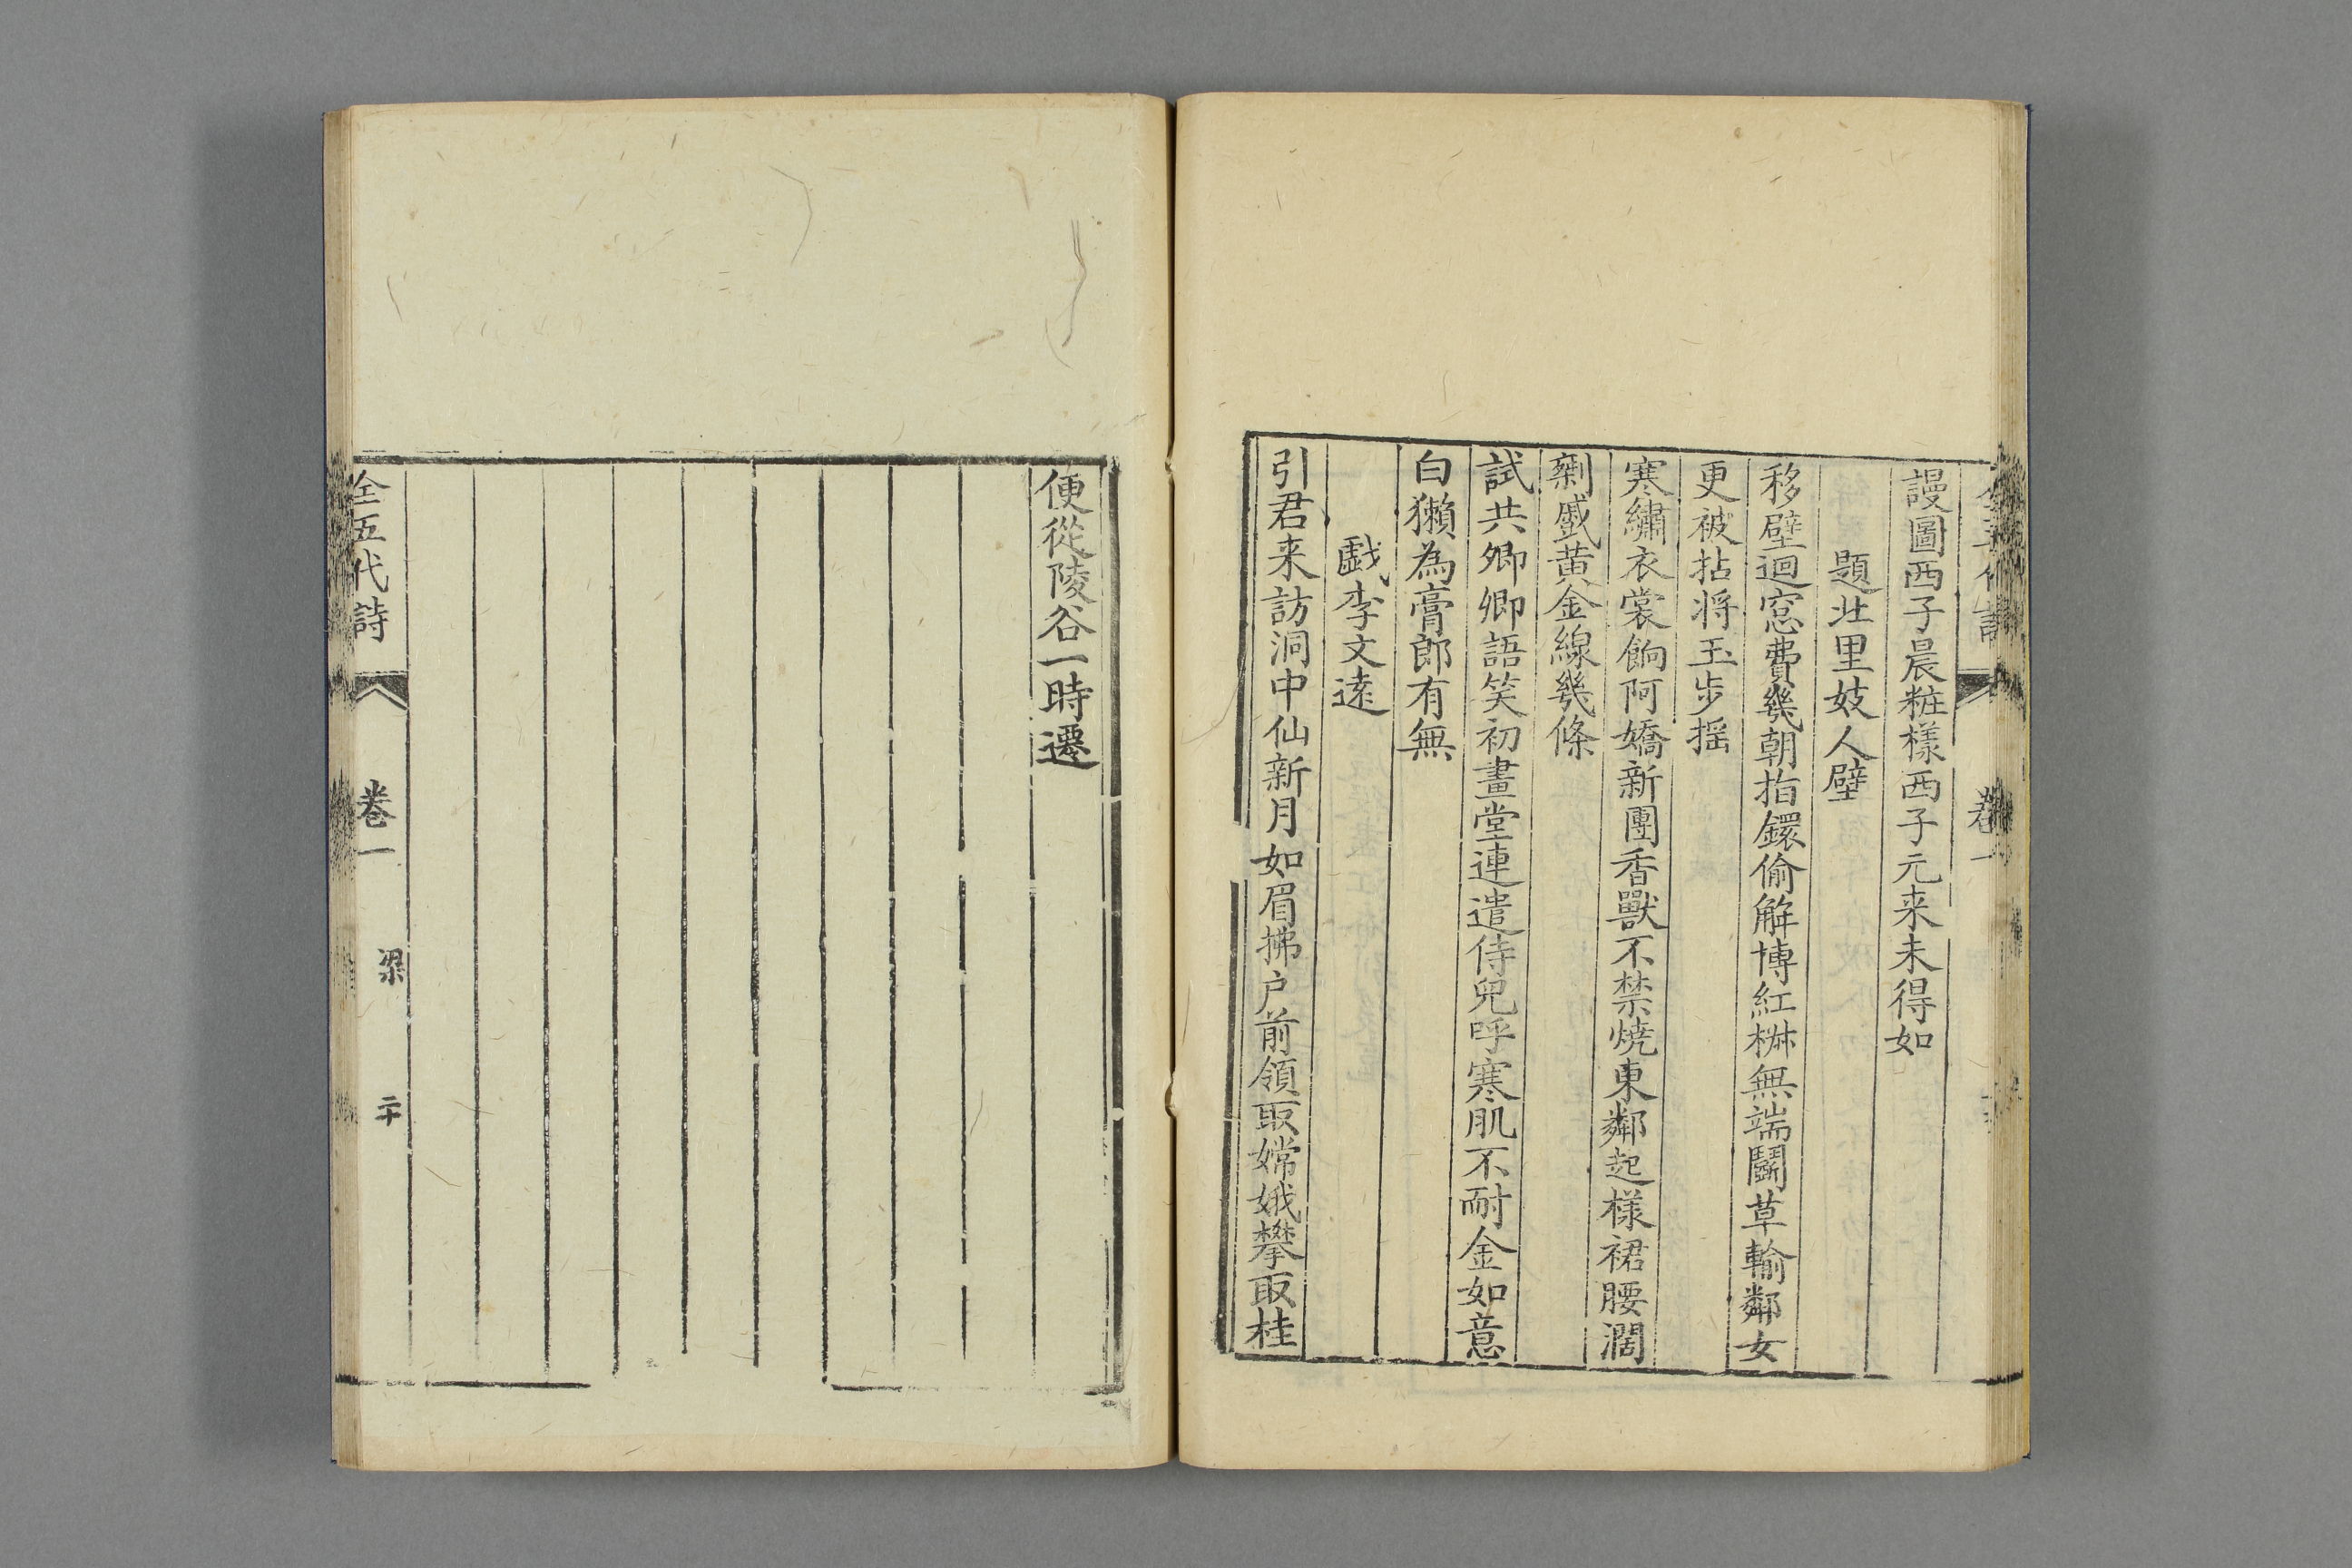 謾圖西子晨粧樣西子元来未得如
題北里妓人壁
移壁迴窓費幾朝指鐶偷解博紅椒無端鬬草輸鄰女
更被拈将玉步摇
寒繡衣裳餉阿嬌新團香獸不禁燒東鄰起様裙腰濶
剩蹙黄金線幾條
試共卿卿語笑初畫堂連遣侍兒呼寒肌不耐金如意
白獺為膏郎有無
戲李文遠
引君来訪洞中仙新月如眉拂户前領取嫦娥攀取桂
便從陵谷一時遷
全五代詩 卷一 梁 二十